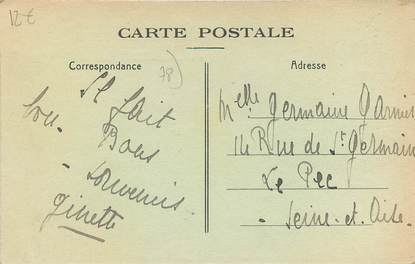 12€
CARTE POSTALE
Correspondance
78
Adresse
Il fait
bon.
Bons
souvenirs
Ginette
Melle Germaine Garnier
14 Rue de St Germain
Le Pec
Seine-et-Oise.